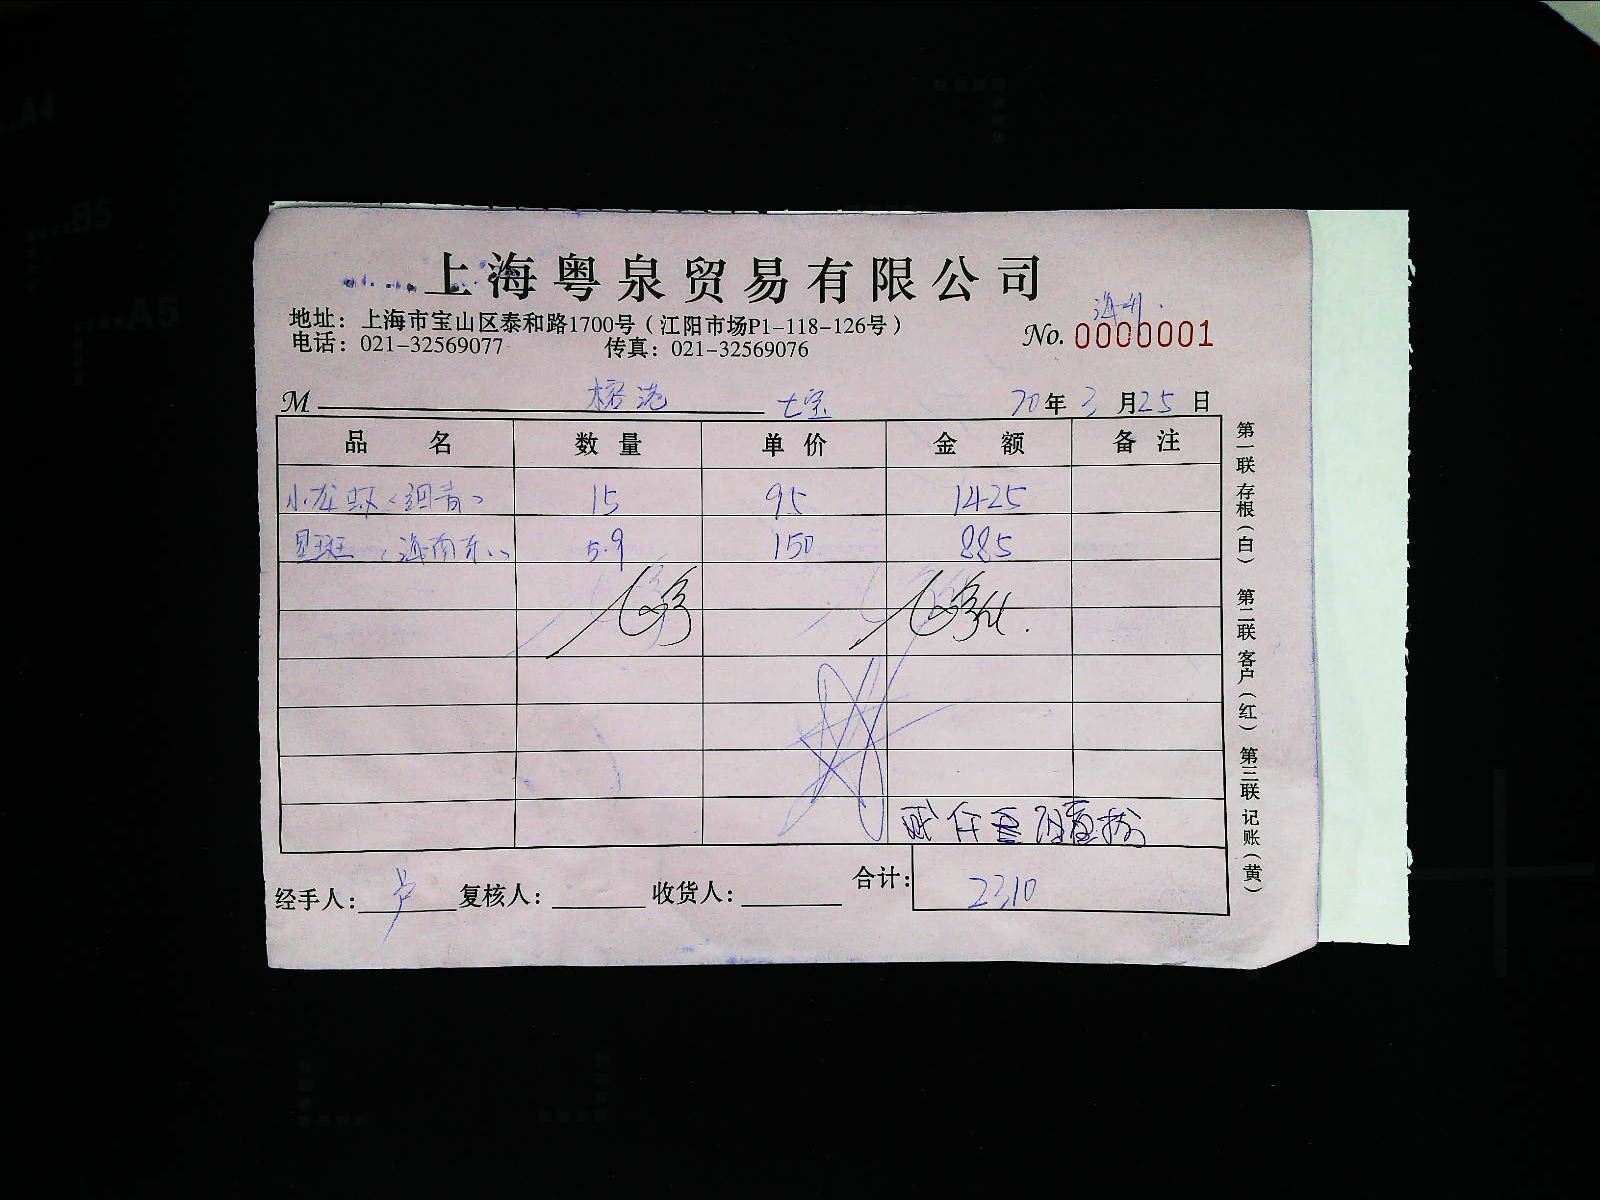 上海粤泉贸易有限公司
地址：上海市宝山区泰和路1700号（江阳市场P1-118-126号）
电话：021-32569077 传真：021-32569076
No. 0000001
M 榕港 七宝 年3月25日
品名 数量 单价 金额 备注
小龙虾（细青） 15 95 1425
星斑（海南东） 5.9 150 885
合计：2310
经手人：卢 复核人： 收货人：
第一联 存根（白） 第二联 客户（红） 第三联 记账（黄）